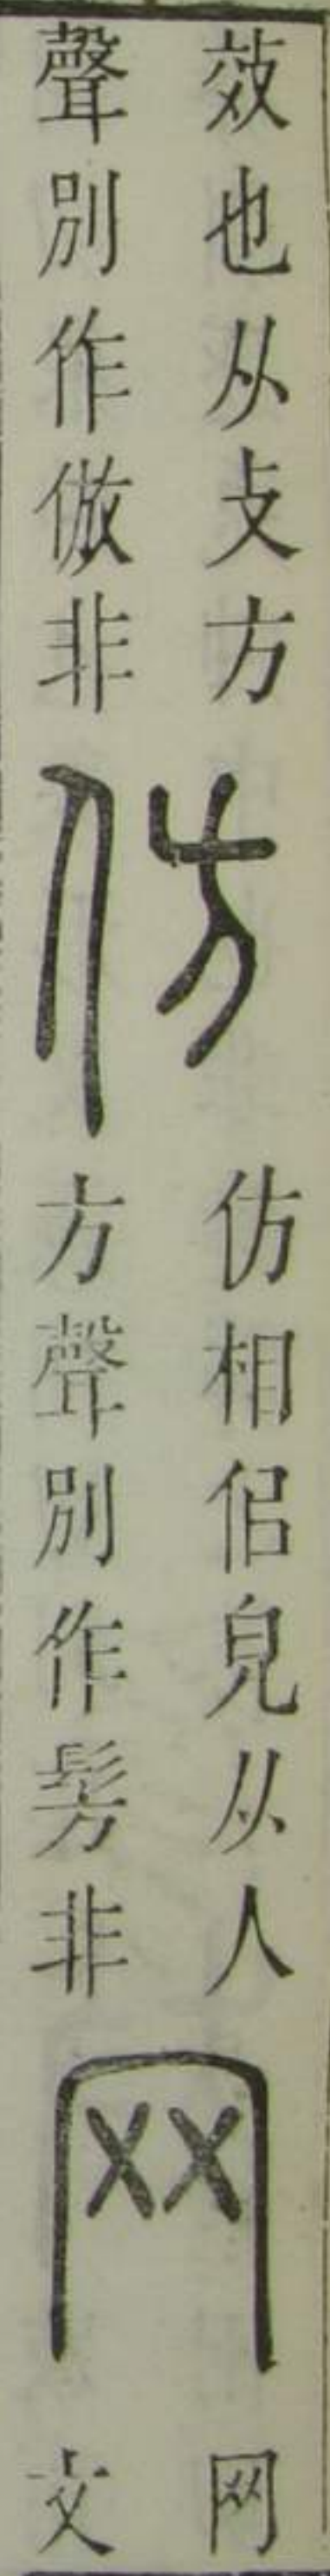 效也从攴方
聲別作倣非
仿
仿相佀皃从人
方聲別作髣非
网
网
文